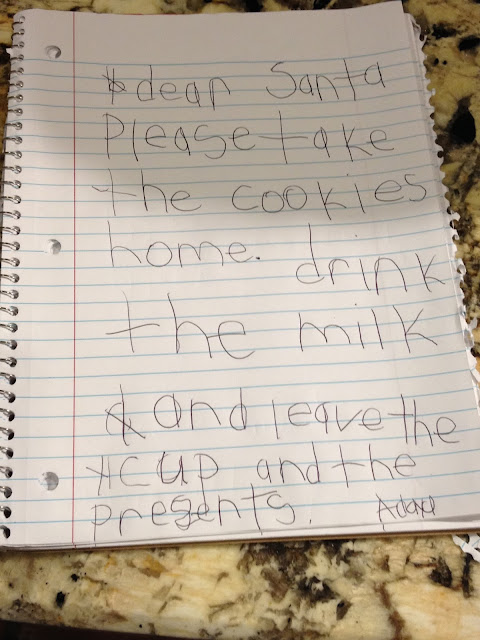 dear Santa
Please take
the cookies
home. drink
the milk
and leave the
cup and the
presents.